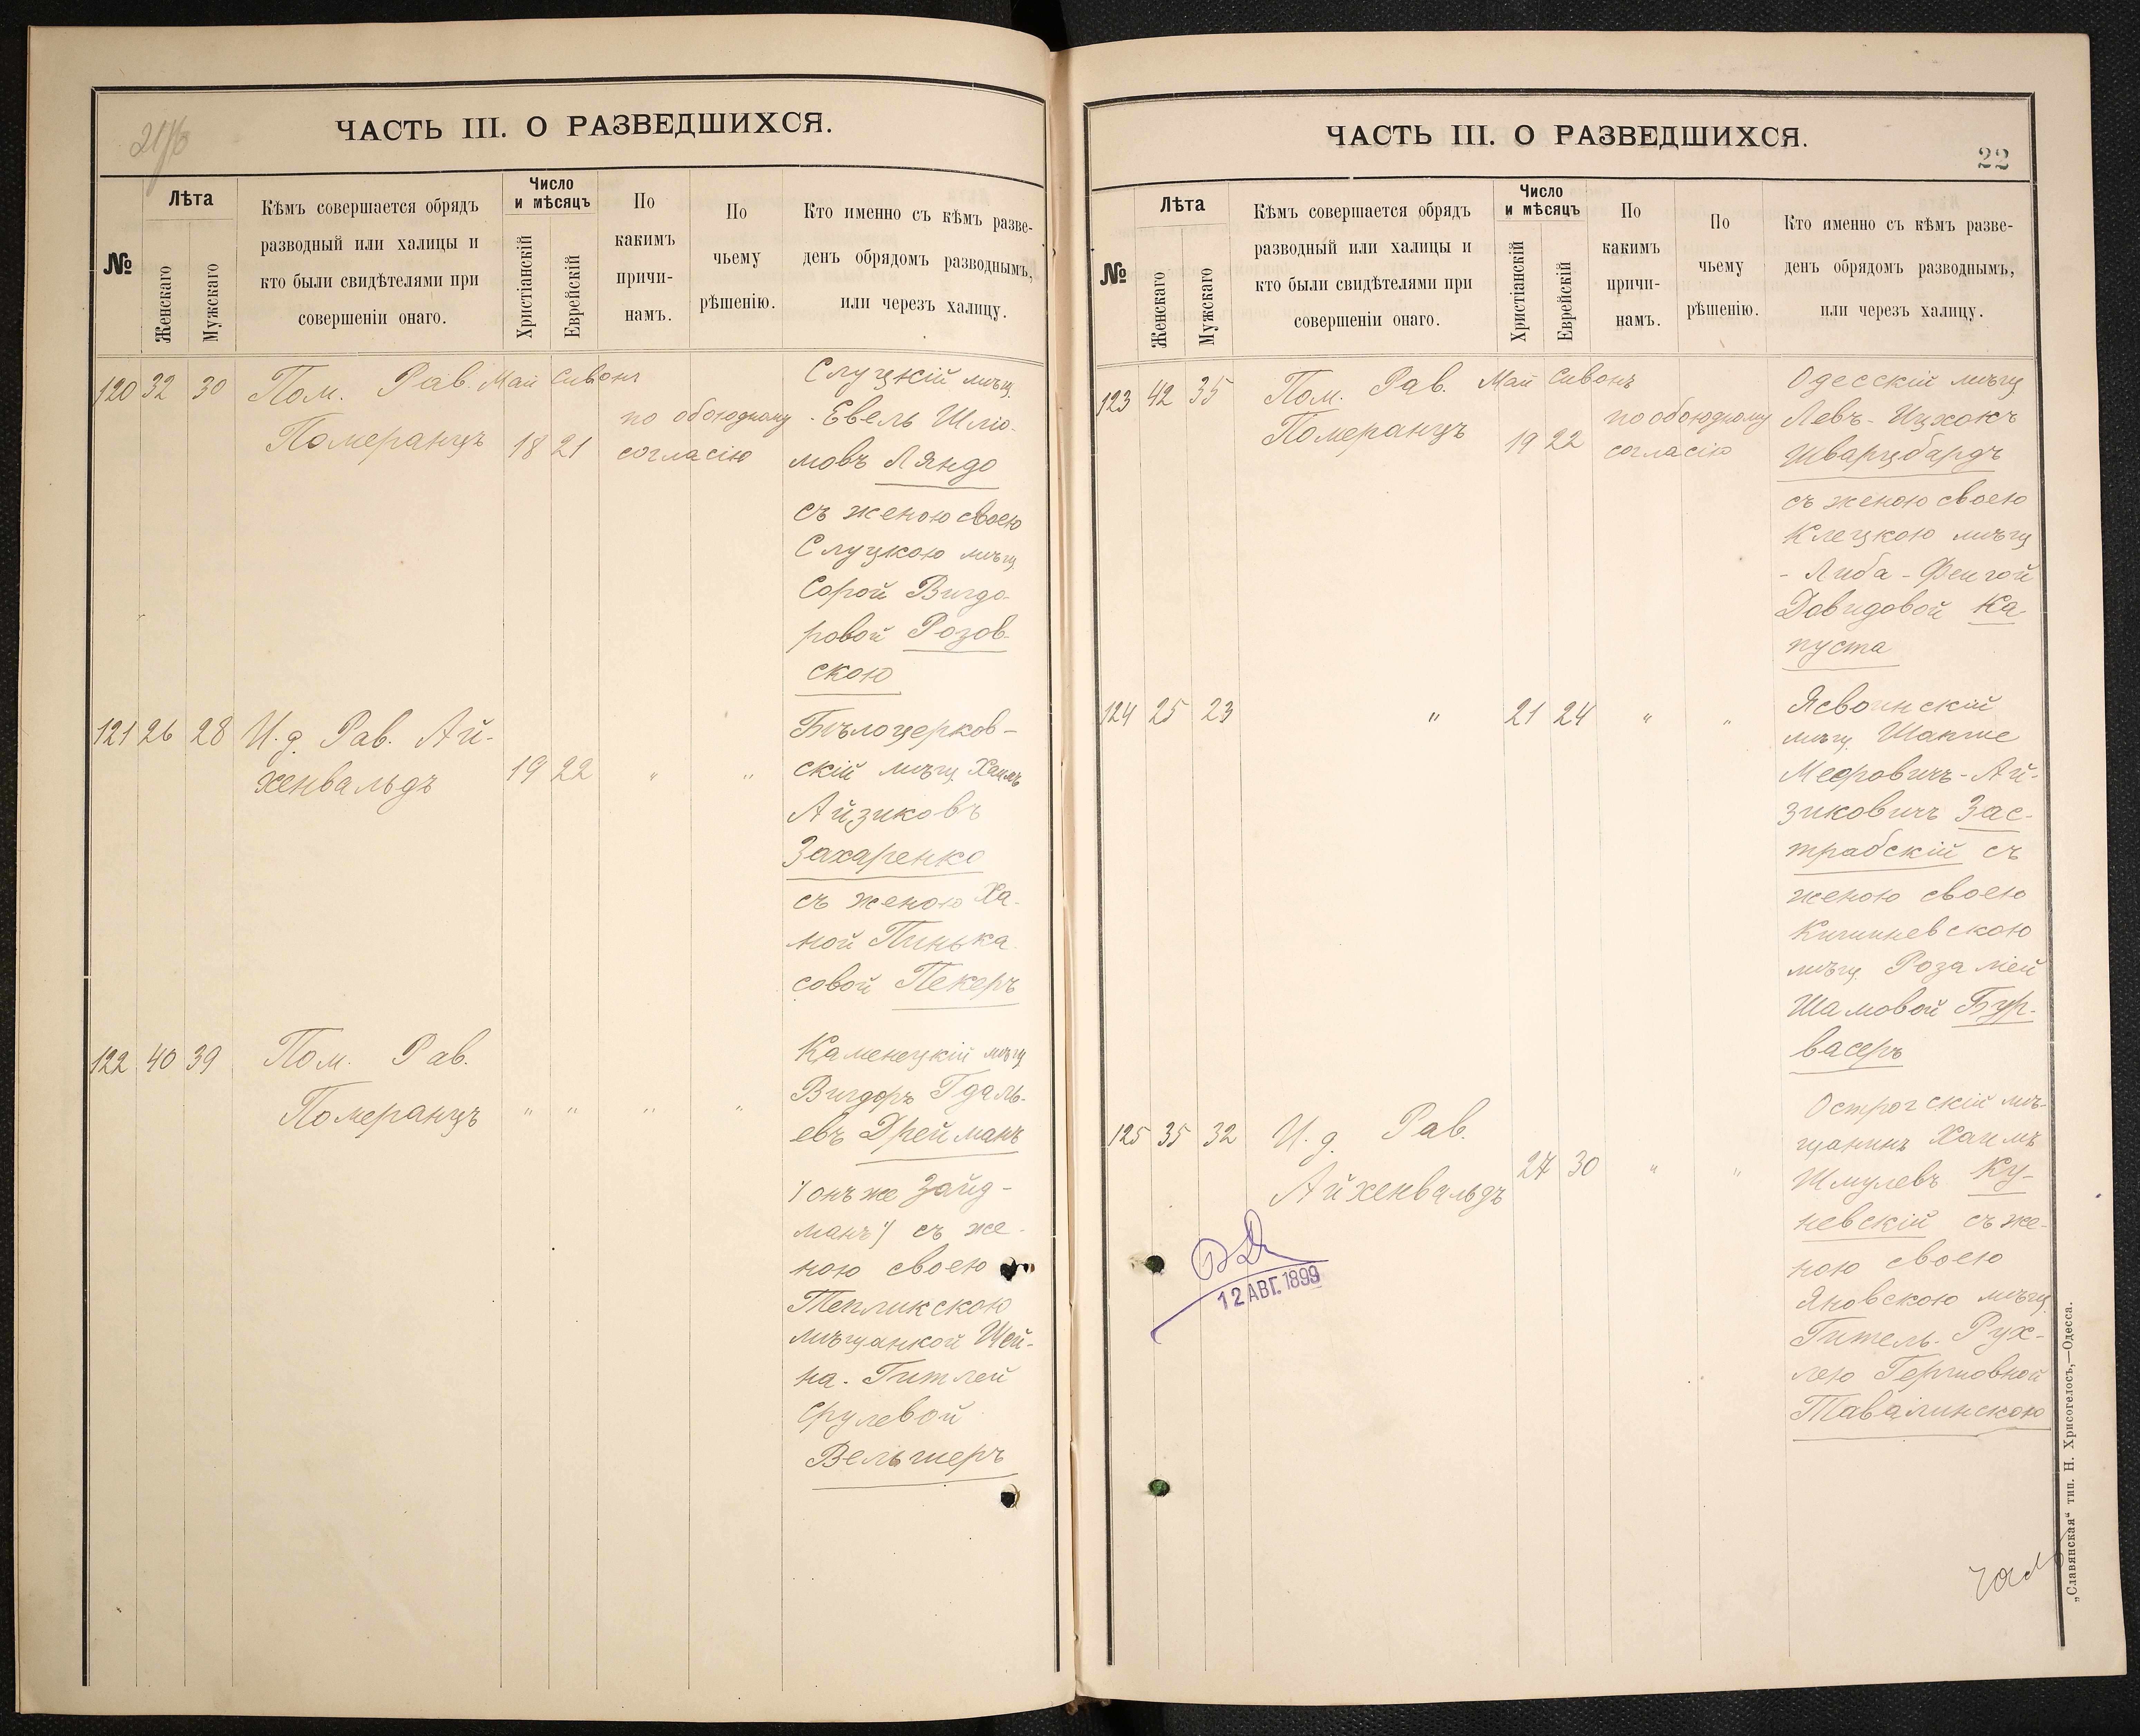 21/б
ЧАСТЬ III. О РАЗВЕДШИХСЯ.
№
Лѣта
Женскаго
Мужскаго
Кѣмъ совершается обрядъ
разводный или халицы и
кто были свидѣтелями при
совершеніи онаго.
Число
и мѣсяцъ
Христіанскій
Еврейскій
По
какимъ
причи-
намъ.
По
чьему
рѣшенію.
Кто именно съ кѣмъ разве-
денъ обрядомъ разводнымъ,
или черезъ халицу.
120 32 30 Пом. Рав. Май Сивонъ
Померанцъ 18 21 по обоюдному
согласію
Слуцкій мѣщ.
Евель Шліо-
мовъ Ляндо
съ женою своею
Слуцкою мѣщ.
Сорой Вигдо-
ровой Розов-
скою
121 26 28 И. д. Рав. Ай-
хенвальдъ 19 22 " "
Бѣлоцерков-
скій мѣщ. Хаимъ
Айзиковъ
Захаренко
съ женою Ха-
ной Пинька-
совой Пекеръ
122 40 39 Пом. Рав.
Померанцъ " " " "
Каменецкій мѣщ
Вигдоръ Гдаль-
евъ Дрейманъ
(онъ же Зайд-
манъ) съ же-
ною своею
Тепликскою
мѣщанкой Шей-
на-Гитлей
Срулевой
Вельшеръ
ЧАСТЬ III. О РАЗВЕДШИХСЯ.
22
№
Лѣта
Женскаго
Мужскаго
Кѣмъ совершается обрядъ
разводный или халицы и
кто были свидѣтелями при
совершеніи онаго.
Число
и мѣсяцъ
Христіанскій
Еврейскій
По
какимъ
причи-
намъ.
По
чьему
рѣшенію.
Кто именно съ кѣмъ разве-
денъ обрядомъ разводнымъ,
или черезъ халицу.
123 42 35 Пом. Рав. Май Сивонъ
Померанцъ 19 22 по обоюдному
согласію
Одесскій мѣщ
Левъ-Ицхокъ
Шварцбардъ
съ женою своею
Клецкою мѣщ
- Либа-Фейгой
Довидовой Ка-
пуста
124 25 23 " 21 24 " "
Ясвоинскій
мѣщ. Шапше
Меровичъ-Ай-
зиковичъ Зас-
трабскій съ
женою своею
Кишиневскою
мѣщ. Розаліей
Шамовой Бур-
васеръ
125 35 32 И. д. Рав.
Айхенвальдъ 27 30 " "
Острогскій мѣ-
щанинъ Хаимъ
Шмулевъ Ку-
невскій съ же-
ною своею
Яновскою мѣщ.
Гитель-Рух-
лею Гершовной
Тавалинскою
12 АВГ. 1899
„Славянская“ тип. Н. Хрисогелосъ,—Одесса.